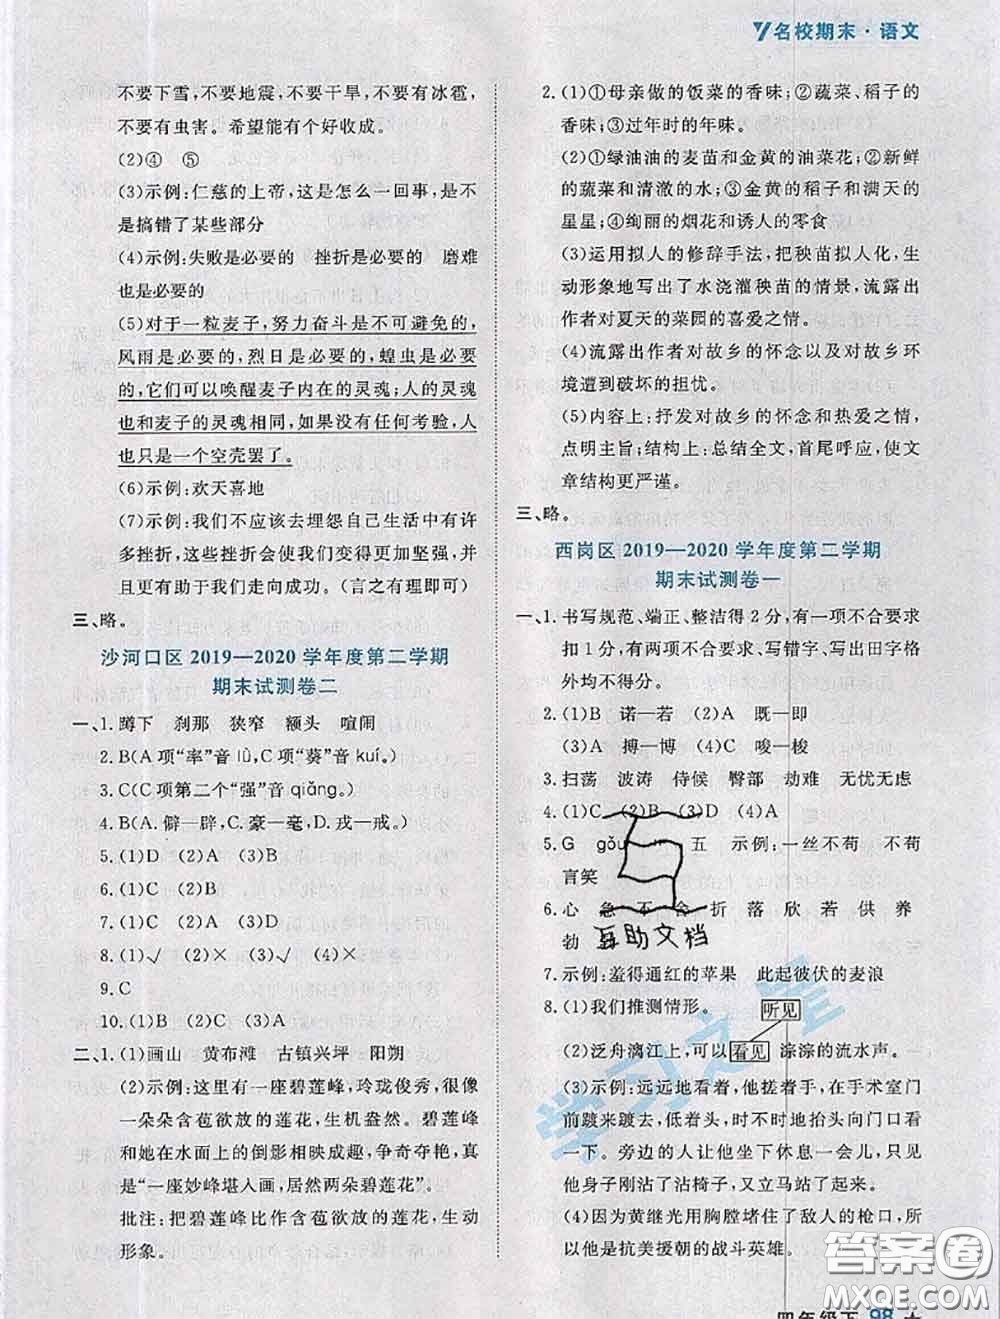 名校期末·语文
不要下雪,不要地震,不要干旱,不要有冰雹,
不要有虫害。希望能有个好收成。
(2)④ ⑤
(3)示例:仁慈的上帝,这是怎么一回事,是不
是搞错了某些部分
(4)示例:失败是必要的 挫折是必要的 磨难
也是必要的
(5)对于一粒麦子,努力奋斗是不可避免的,
风雨是必要的,烈日是必要的,蝗虫是必要
的,它们可以唤醒麦子内在的灵魂;人的灵魂
也和麦子的灵魂相同,如果没有任何考验,人
也只是一个空壳罢了。
(6)示例:欢天喜地
(7)示例:我们不应该去埋怨自己生活中有许
多挫折,这些挫折会使我们变得更加强大,从
而更有助于我们走向成功。(言之有理即可)
三、略。
沙河口区2019—2020学年度第二学期
期末试测卷二
一、1. 蹲下 刹那 狭窄 额头 喧闹
2. B(A项“率”音lǜ,C项“葵”音kuí。)
3. C(C项第二个“强”音qiǎng。)
4. B(A.僻—辟,C.豪—毫,D.戎—戒。)
5. (1)D (2)A (3)B
6. (1)C (2)B
7. (1)C (2)A (3)D
8. (1)√ (2)× (3)√ (4)×
9. C
10. (1)B (2)C (3)A
二、1. (1)画山 黄布滩 古镇兴坪 阳朔
(2)示例:这里有一座碧莲峰,玲珑俊秀,很像
一朵朵含苞欲放的莲花,生机盎然。碧莲峰
和她在水面上的倒影相映成趣,争奇夺艳,真
是“一座妙峰堪入画,居然两朵碧莲花”。
批注:把碧莲峰比作含苞欲放的莲花,生动
形象。
2. (1)①母亲做的饭菜的香味;②蔬菜、稻子的
香味;③过年时的年味。
(2)①绿油油的麦苗和金黄的油菜花;②新鲜
的蔬菜和清澈的水;③金黄的稻子和满天的
星星;④绚丽的烟花和诱人的零食
(3)运用拟人的修辞手法,把秧苗拟人化,生
动形象地写出了水浇灌秧苗的情景,流露出
作者对夏天的菜园的喜爱之情。
(4)流露出作者对故乡的怀念以及对故乡环
境遭到破坏的担忧。
(5)内容上:抒发对故乡的怀念和热爱之情,
点明主旨;结构上:总结全文,首尾呼应,使文
章结构更严谨。
三、略。
西岗区2019—2020学年度第二学期
期末试测卷一
一、1. 书写规范、端正、整洁得2分,有一项不合要求
扣1分,有两项不合要求、写错字、写出田字格
外均不得分。
2. (1)B 诺—若 (2)A 既—即
(3)A 搏—博 (4)C 唆—梭
3. 扫荡 波涛 侍候 臀部 劫难 无忧无虑
4. (1)C (2)B (3)D (4)A
5. G 五 示例:一丝不苟 不苟
言笑
6. 心 急 不 舍 折 落 欣 若 供 养
勃
互助文档
7. 示例:羞得通红的苹果 此起彼伏的麦浪
8. (1)我们推测情形。 听见
(2)泛舟漓江上,可以看见淙淙的流水声。
(3)示例:远远地看着,他搓着手,在手术室门
前踱来踱去,低着头,时不时地抬头向门口看
一下。旁边的人让他坐下休息一会儿,只见
他身子刚沾了沾椅子,又立马站了起来。
(4)因为黄继光用胸膛堵住了敌人的枪口,所
以他是抗美援朝的战斗英雄。
学习之星
答案圈
MXQE.COM
四年级下 98